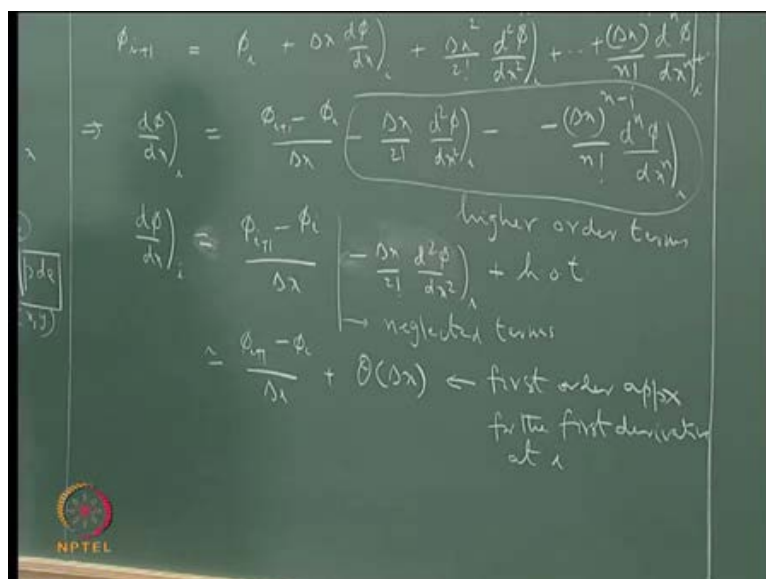 ϕᵢ₊₁ = ϕᵢ + Δx dϕ/dx)ᵢ + Δx²/2! d²ϕ/dx²)ᵢ + ·· + (Δx)ⁿ/n! dⁿϕ/dxⁿ)ᵢ +
⇒ dϕ/dx)ᵢ = ϕᵢ₊₁ - ϕᵢ/Δx - Δx/2! d²ϕ/dx²)ᵢ - - (Δx)ⁿ⁻¹/n! dⁿϕ/dxⁿ)ᵢ
higher order terms
dϕ/dx)ᵢ = ϕᵢ₊₁ - ϕᵢ/Δx | - Δx/2! d²ϕ/dx²)ᵢ + h o t
→ neglected terms
= ϕᵢ₊₁ - ϕᵢ/Δx + O(Δx) ← first order appx
for the first derivative
at i
x
pde
(x,y)
NPTEL